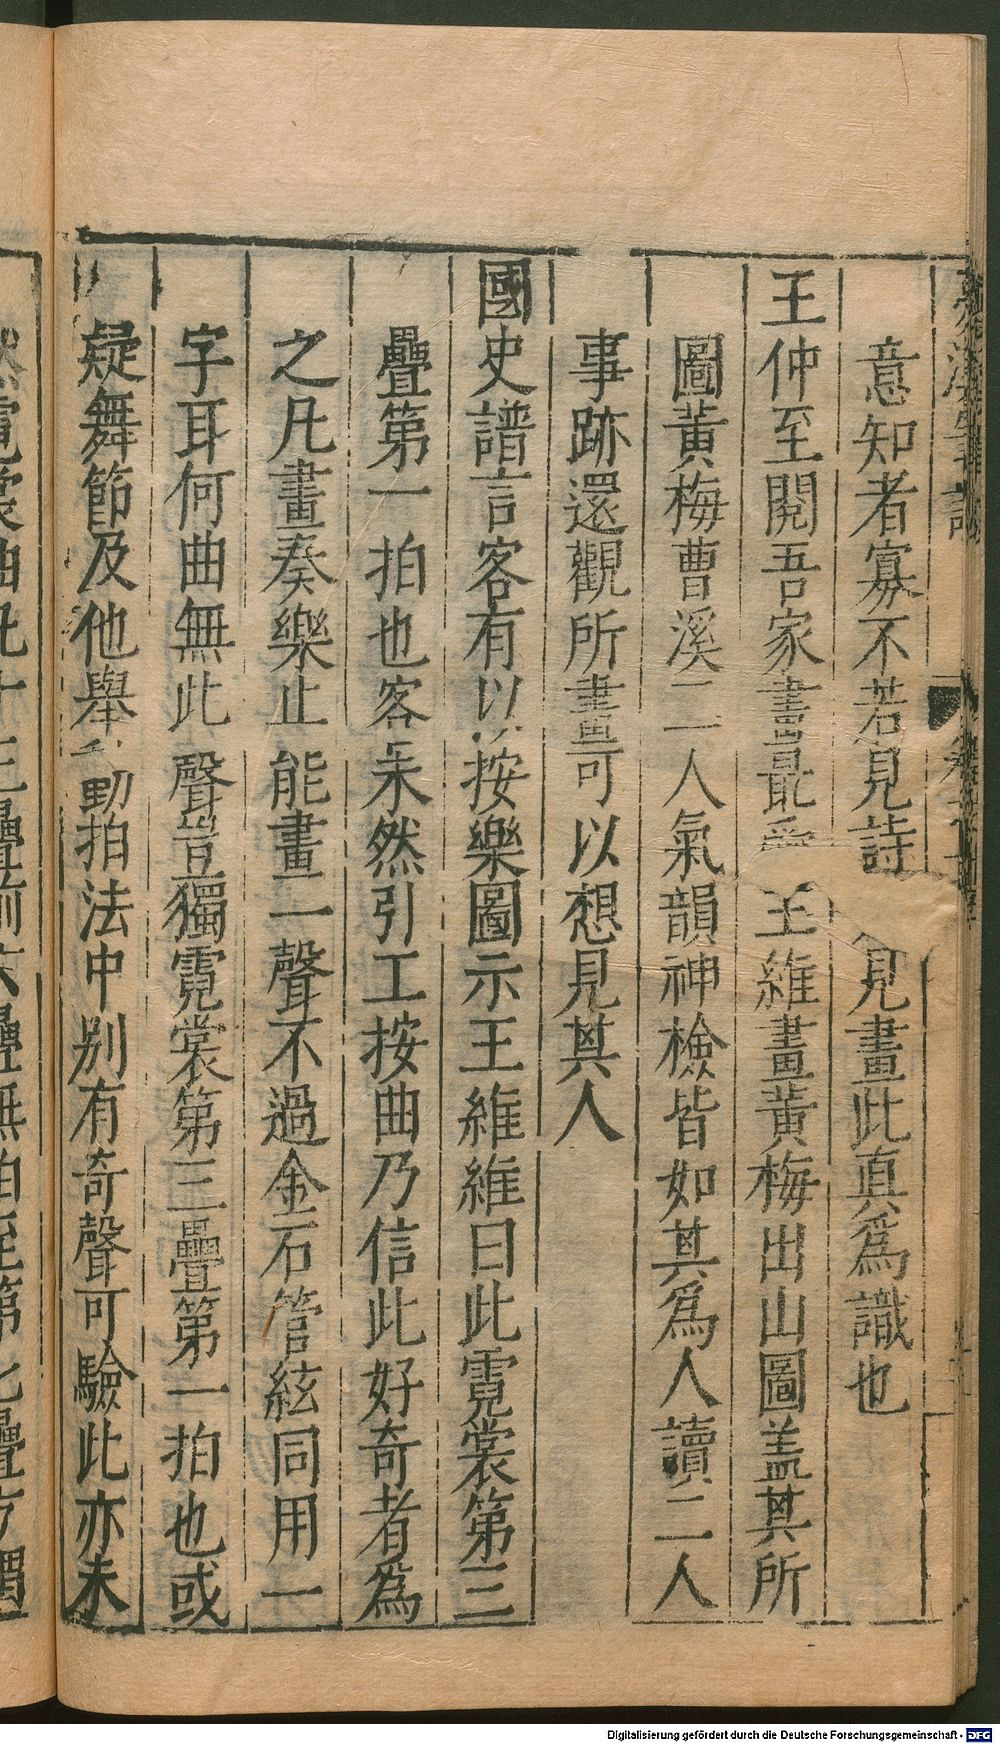 意知者寡不若見詩見畫此真爲識也
王仲至閱吾家畫最愛王維畫黃梅出山圖盖其所
圖黃梅曹溪二人氣韻神檢皆如其爲人讀二人
事跡還觀所畫可以想見其人
國史譜言客有以按樂圖示王維維曰此霓裳第三
疊第一拍也客未然引工按曲乃信此好奇者爲
之凡畫奏樂止能畫一聲不過金石管絃同用一
字耳何曲無此聲豈獨霓裳第三疊第一拍也或
疑舞節及他舉動拍法中別有奇聲可驗此亦未
然霓裳曲凡十三疊前六疊無拍至第七疊方謂
Digitalisierung gefördert durch die Deutsche Forschungsgemeinschaft - DFG